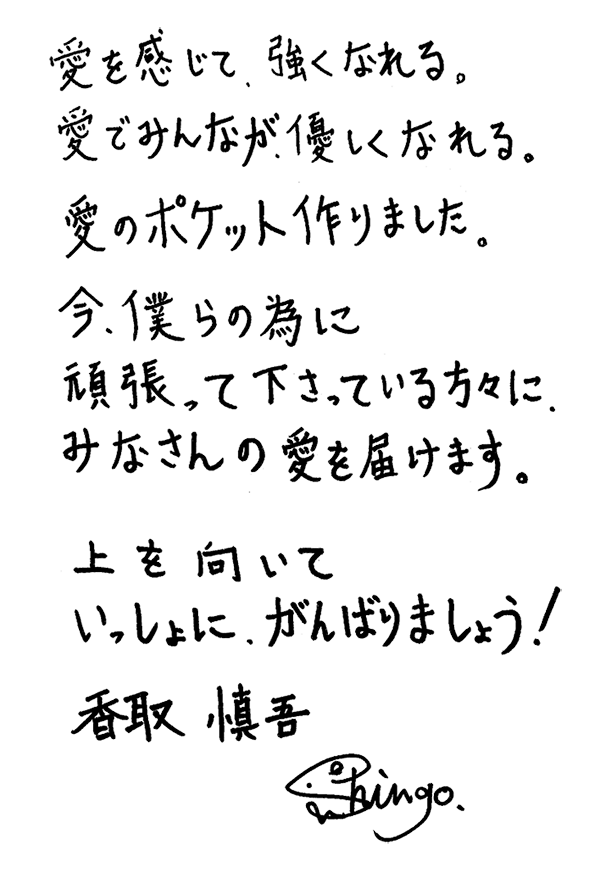 愛を感じて、強くなれる。
愛でみんなが、優しくなれる。
愛のポケット作りました。
今、僕らの為に
頑張って下さっている方々に、
みなさんの愛を届けます。
上を向いて
いっしょに、がんばりましょう!
香取 慎吾
Shingo.